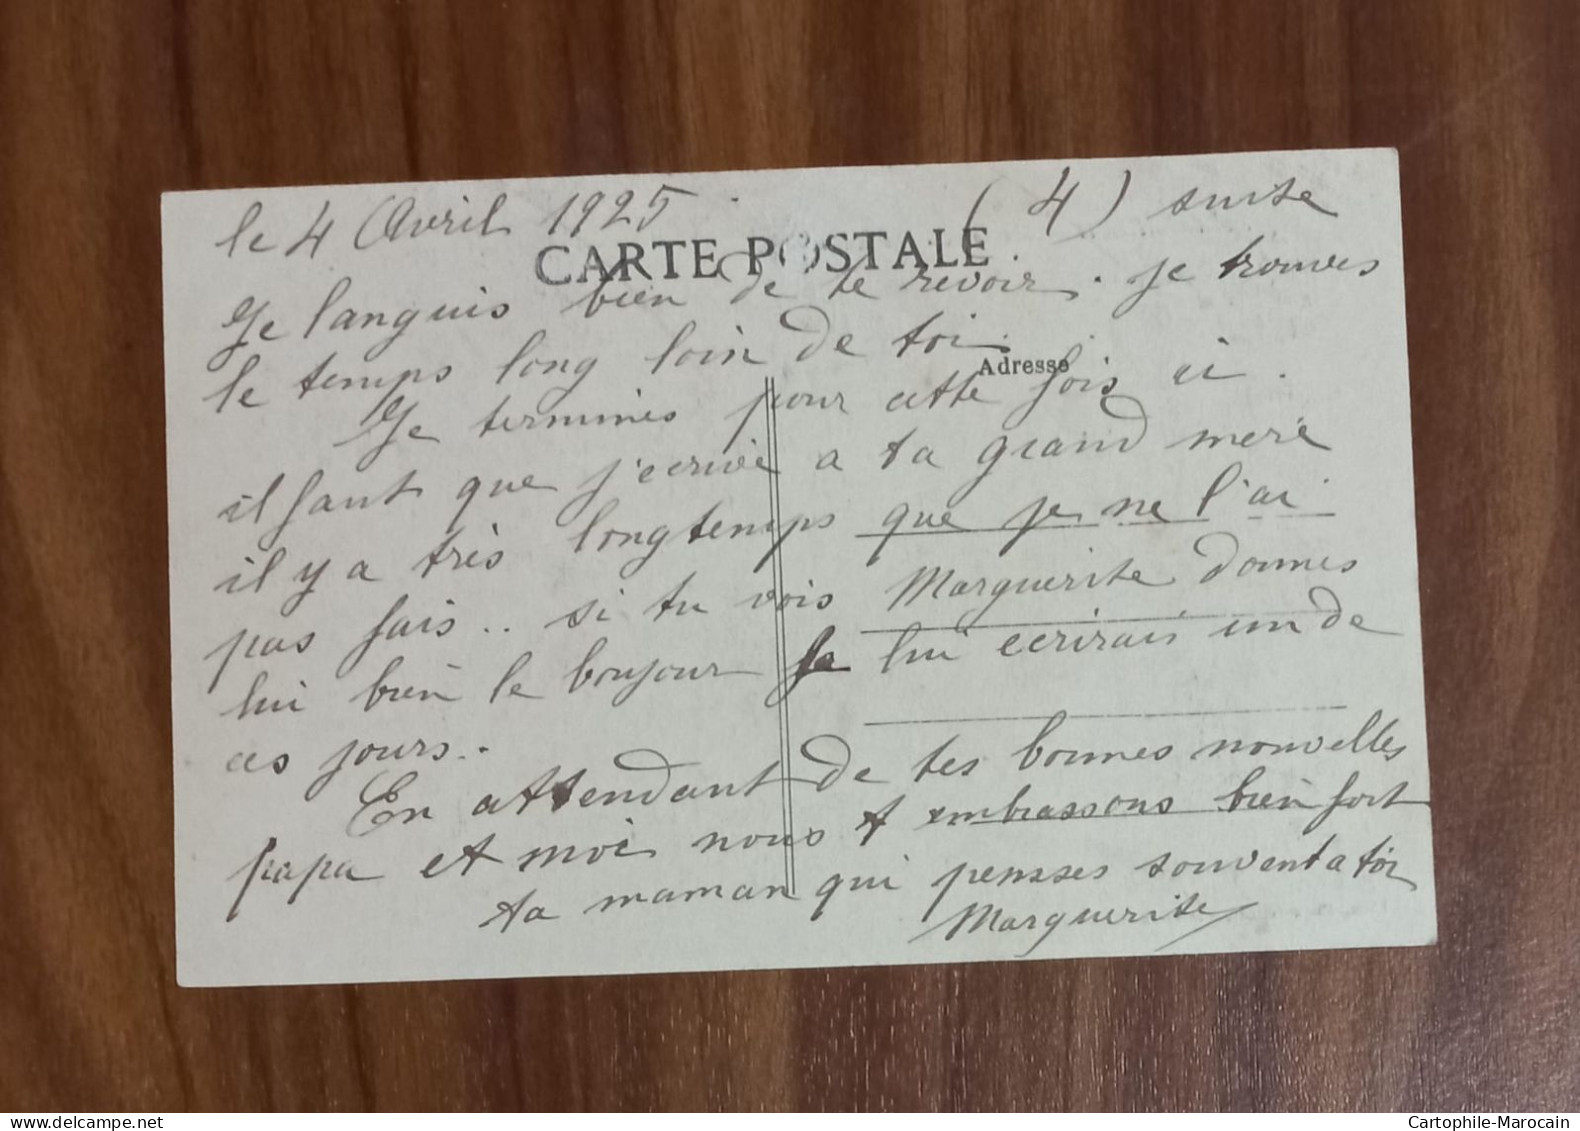 le 4 Avril 1925. (4) suite
CARTE POSTALE
Je languis bien de te revoir. je trouves
le temps long loin de toi.
Adresse
Je termines pour cette fois ci.
il faut que j'ecrive a ta grand mere
il y a très longtemps que je ne l'ai
pas fais.. si tu vois Marguerite donnes
lui bien le bonjour je lui ecrirais un de
ces jours..
En attendant de tes bonnes nouvelles
papa et moi nous t embrassons bien fort
ta maman qui pensses souvent a toi
Marguerite
Cartophile-Marocain